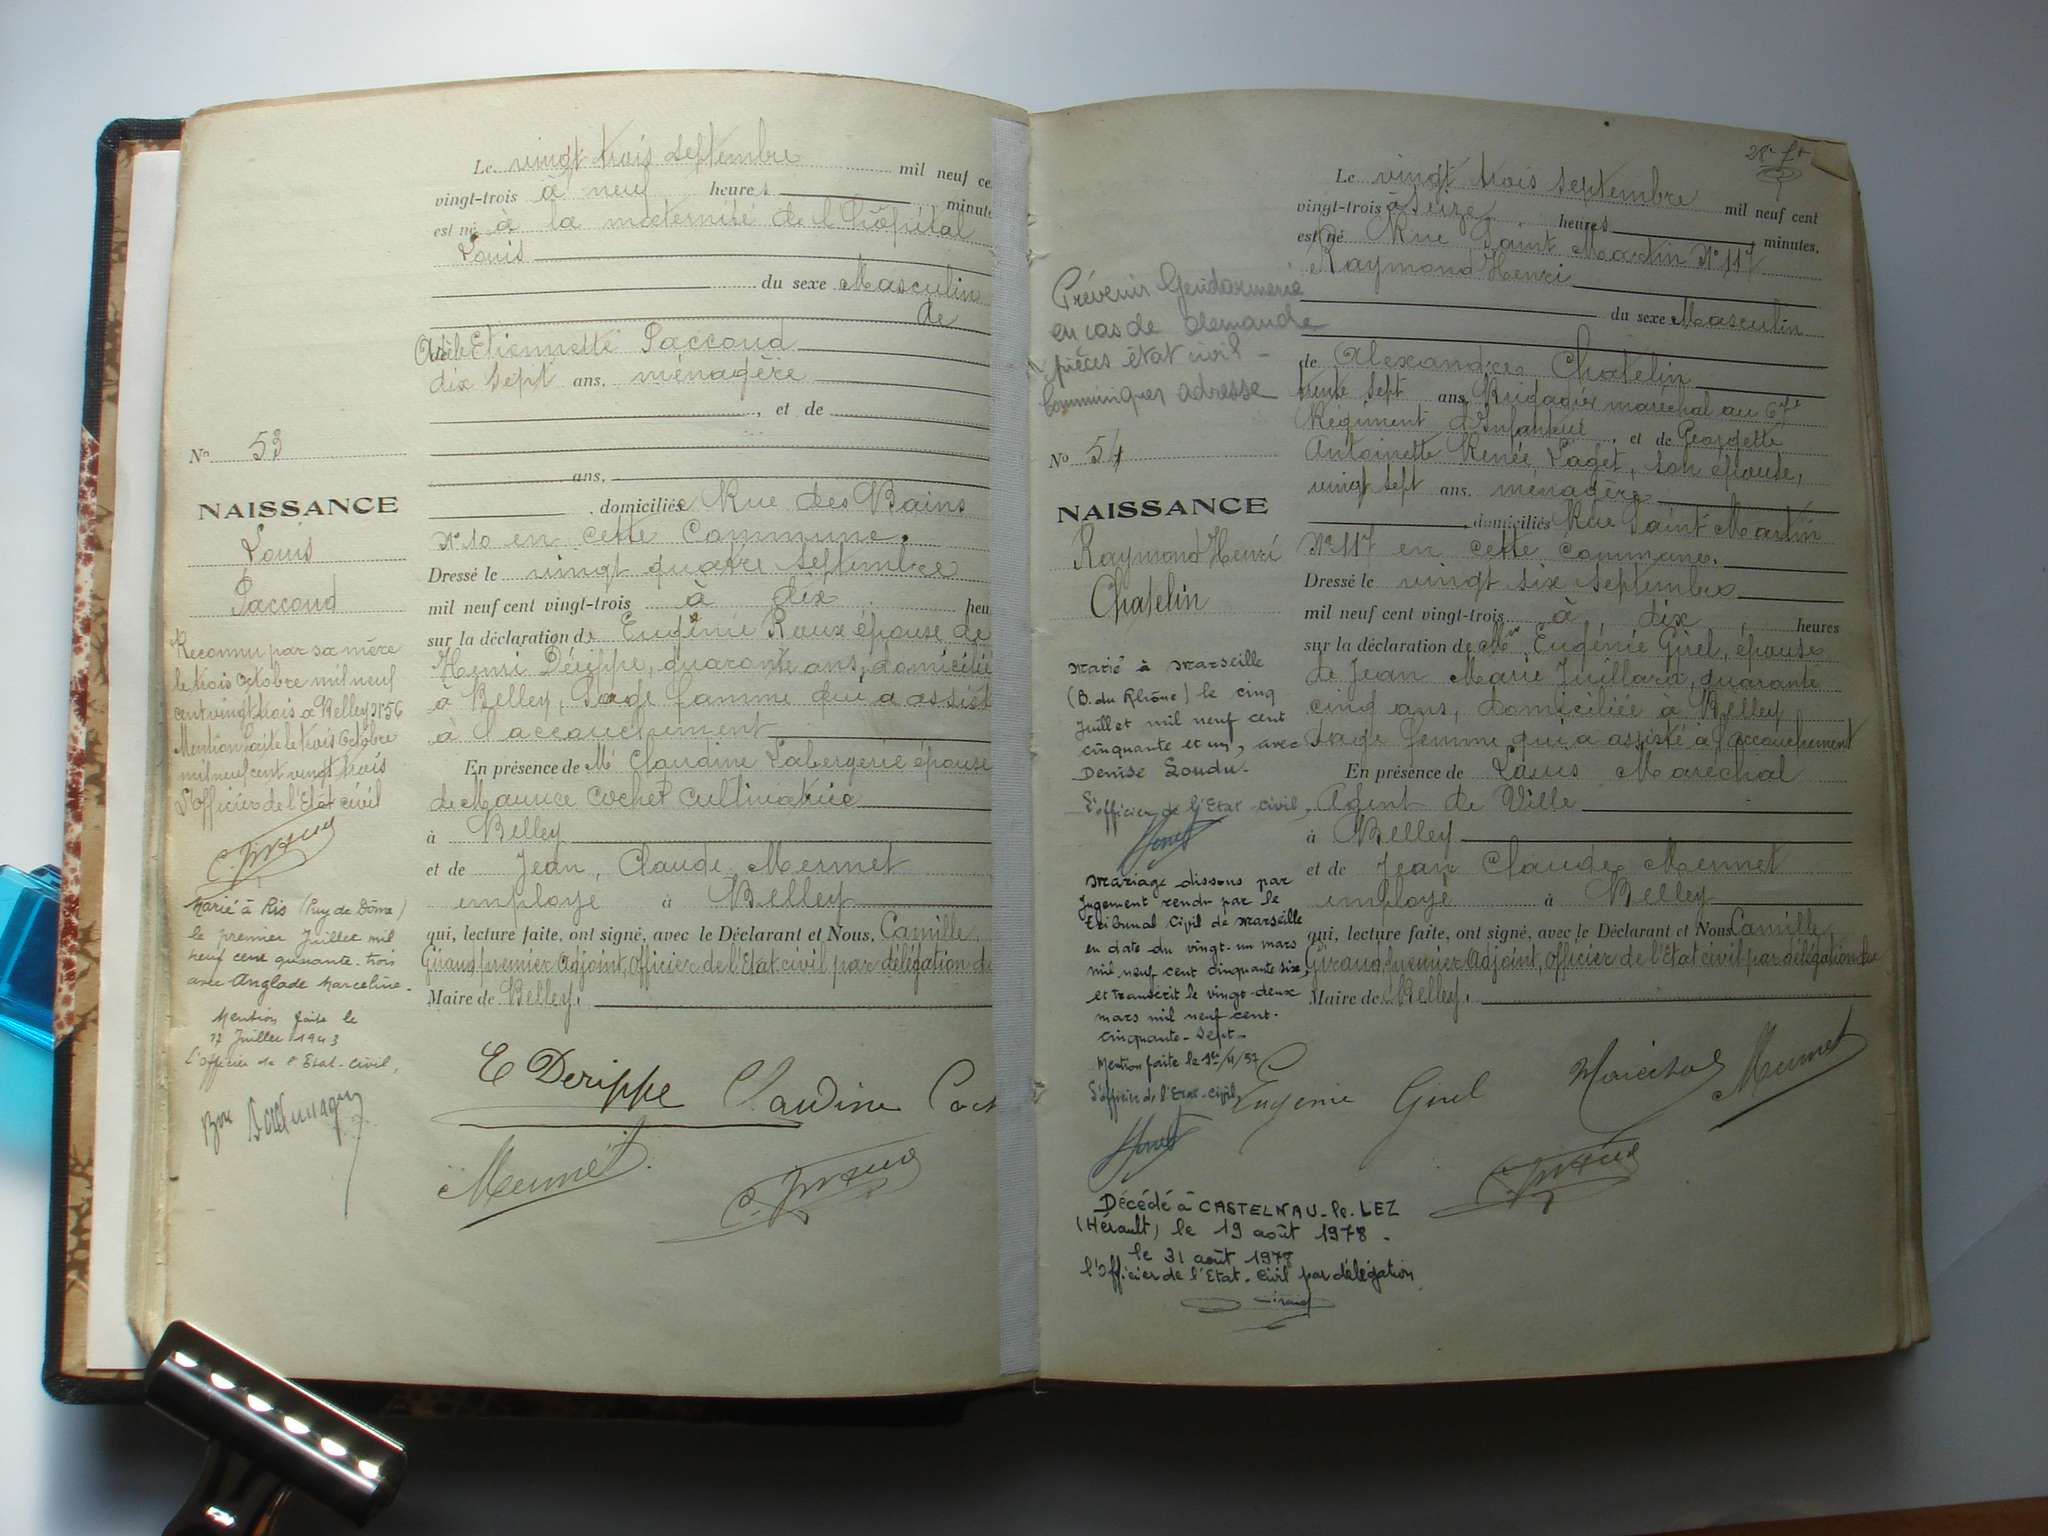 Le vingt trois septembre mil neuf ce
vingt-trois à neuf heures minute
est né à la maternité de l'hôpital
Louis
du sexe Masculin
de
Etiennette Paccoud
dix sept ans, ménagère
, et de
ans,
domiciliée Rue des Bains
N° 10 en cette Commune.
Dressé le vingt quatre septembre
mil neuf cent vingt-trois à dix heu
sur la déclaration de Eugénie Roux épouse de
Henri Derippe, quarante ans, domiciliée
à Belley, Sage femme qui a assisté
à l'accouchement
En présence de Mᵉ Claudine Labergerie épouse
de Maurice Cochet Cultivatrice
à Belley
et de Jean, Claude Mermet
employé à Belley
qui, lecture faite, ont signé, avec le Déclarant et Nous, Camille
Giraud premier Adjoint, Officier de l'Etat civil par délégation du
Maire de Belley.
E Derippe Claudine Coch
Mermet
N° 53
NAISSANCE
Louis
Paccoud
Reconnu par sa mère
le trois Octobre mil neuf
cent vingt trois à Belley N° 56
Mention faite le trois Octobre
mil neuf cent vingt trois
L'Officier de l'Etat civil
Marié à Ris (Puy de Dôme)
le premier Juillet mil
neuf cent quarante-trois
avec Anglade Marceline.
Mention faite le
17 Juillet 1943
L'Officier de l'Etat-Civil,
Le vingt trois septembre mil neuf cent
vingt-trois à seize heures minutes,
est né Rue Saint Martin N° 117
Raymond Henri
du sexe Masculin
de Alexandre Chatelin
trente sept ans, Brigadier maréchal au 67ᵉ
Régiment d'Infanterie, et de Georgette
Antoinette Renée Paget, son épouse,
vingt sept ans, ménagère
domiciliés Rue Saint Martin
N° 117 en cette Commune.
Dressé le vingt six septembre
mil neuf cent vingt-trois à dix heures
sur la déclaration de Mᵐᵉ Eugénie Girel, épouse
de Jean Marie Juillard, quarante
cinq ans, domiciliée à Belley
Sage femme qui a assisté à l'accouchement
En présence de Louis Maréchal
Agent de Ville
à Belley
et de Jean Claude Mermet
employé à Belley
qui, lecture faite, ont signé, avec le Déclarant et Nous Camille
Giraud, premier Adjoint, Officier de l'Etat civil par délégation du
Maire de Belley.
Eugénie Girel Maréchal Mermet
Prévenir Gendarmerie
en cas de demande
pièces état civil -
Communiquer adresse
N° 54
NAISSANCE
Raymond Henri
Chatelin
Marié à Marseille
(B. du Rhône) le cinq
Juillet mil neuf cent
cinquante et un, avec
Denise Loudu.
L'officier de l'Etat civil,
Mariage dissous par
jugement rendu par le
Tribunal Civil de Marseille
en date du vingt-un mars
mil neuf cent cinquante six,
et transcrit le vingt-deux
mars mil neuf cent-
cinquante-sept-
Mention faite le 1er/4/57
L'officier de l'Etat-Civil,
Décédé à CASTELNAU-le-LEZ
(Hérault) le 19 août 1978 -
le 31 août 1978
l'Officier de l'Etat-Civil par délégation